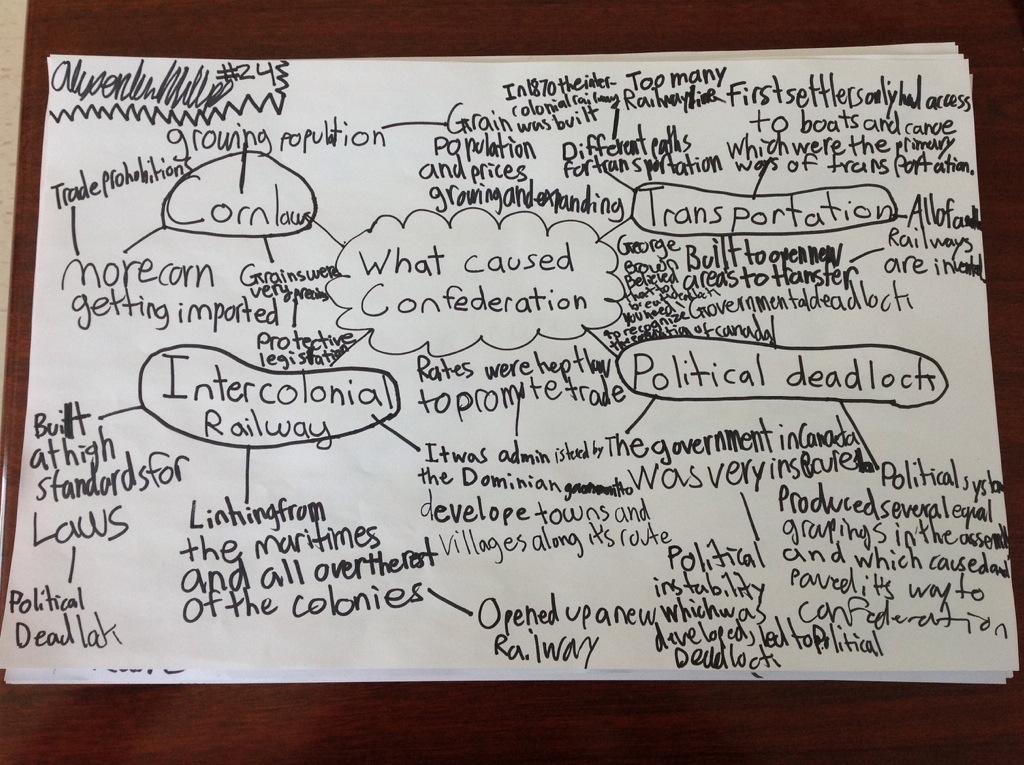 #24
growing population
Trade prohobition
Corn laws
more corn
getting imported
Grains were
very precious
Protective
legistration
Grain
population
and prices
growing and expanding
In 1870 the inter-
colonial railway
was built
Too many
Railway lines
Different paths
for transportation
First settlers only had access
to boats and canoe
which were the primary
ways of transportation.
Transportation
All of and
Railways
are in
Built to open new
areas to transfer
Governmental deadlock
George
Brown
Believed
that to
you need
to recognize
the of canada
What caused
Confederation
Intercolonial
Railway
Built
at high
standards for
Laws
Political
Deadlock
Linking from
the maritimes
and all over the rest
of the colonies
Opened up a new
Railway
Rates were kept low
to promote trade
It was administered by
the Dominian government to
develope towns and
villages along its route
Political deadlock
The government in Canada
was very insecure
Political
instability
which was
developed, led to Political
Deadlock
Political system
Produced several equal
gropings in the assembly
and which caused and
paved its way to
confederation